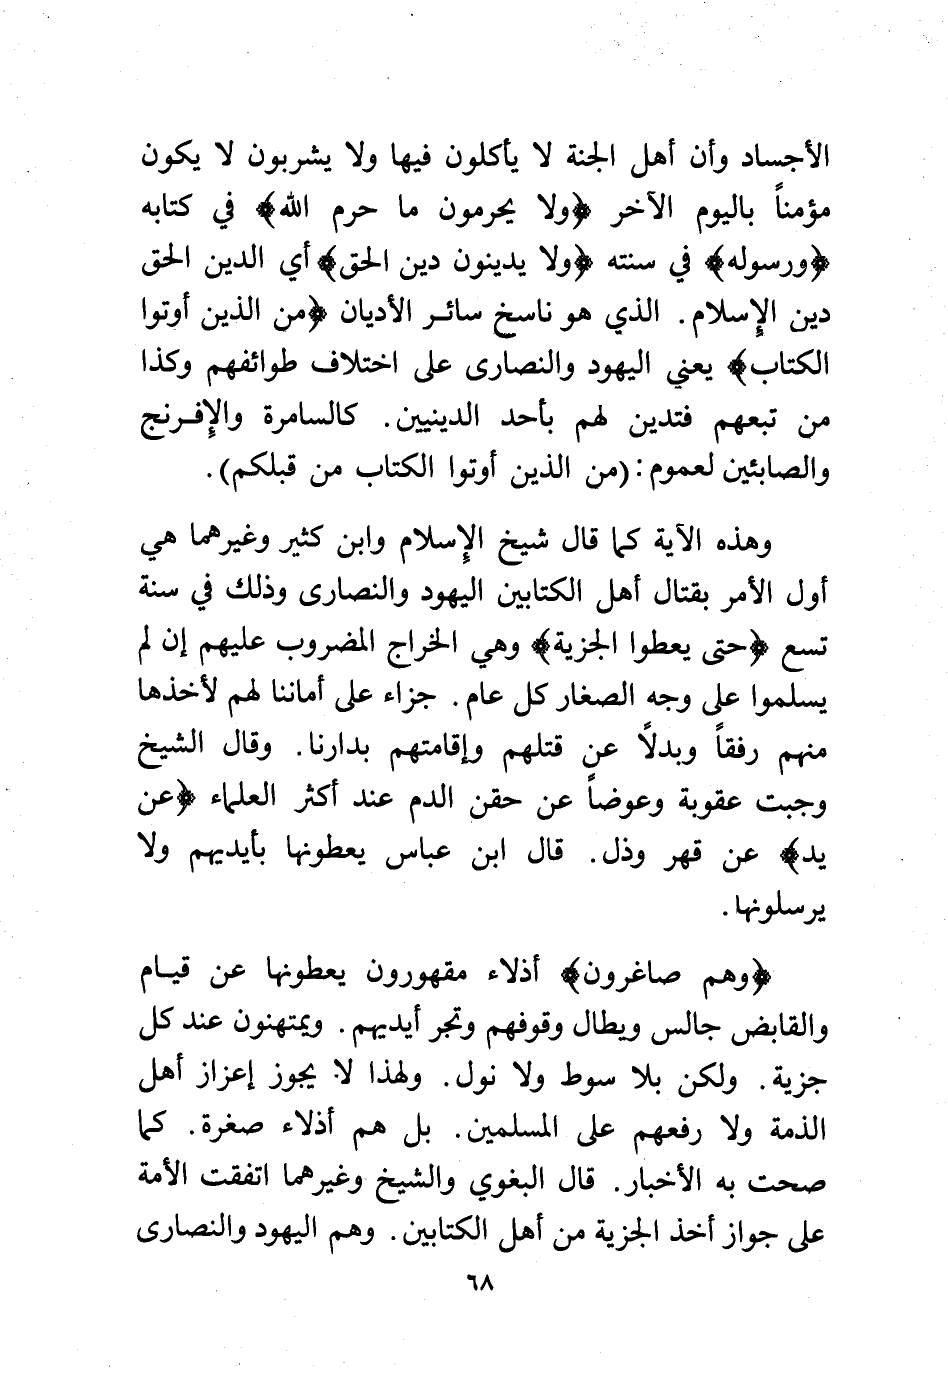 الأجساد وأن أهل الجنة لا يأكلون فيها ولا يشربون لا يكون
مؤمناً باليوم الآخر ﴿ولا يحرمون ما حرم الله﴾ في كتابه
﴿ورسوله﴾ في سنته ﴿ولا يدينون دين الحق﴾ أي الدين الحق
دين الإسلام. الذي هو ناسخ سائر الأديان ﴿من الذين أوتوا
الكتاب﴾ يعني اليهود والنصارى على اختلاف طوائفهم وكذا
من تبعهم فتدين لهم بأحد الدينيين. كالسامرة والإفرنج
والصابئين لعموم: (من الذين أوتوا الكتاب من قبلكم).
وهذه الآية كما قال شيخ الإسلام وابن كثير وغيرهما هي
أول الأمر بقتال أهل الكتابين اليهود والنصارى وذلك في سنة
تسع ﴿حتى يعطوا الجزية﴾ وهي الخراج المضروب عليهم إن لم
يسلموا على وجه الصغار كل عام. جزاء على أماننا لهم لأخذها
منهم رفقاً وبدلاً عن قتلهم وإقامتهم بدارنا. وقال الشيخ
وجبت عقوبة وعوضاً عن حقن الدم عند أكثر العلماء ﴿عن
يد﴾ عن قهر وذل. قال ابن عباس يعطونها بأيديهم ولا
يرسلونها.
﴿وهم صاغرون﴾ أذلاء مقهورون يعطونها عن قيام
والقابض جالس ويطال وقوفهم وتجر أيديهم. ويمتهنون عند كل
جزية. ولكن بلا سوط ولا نول. ولهذا لا يجوز إعزاز أهل
الذمة ولا رفعهم على المسلمين. بل هم أذلاء صغرة. كما
صحت به الأخبار. قال البغوي والشيخ وغيرهما اتفقت الأمة
على جواز أخذ الجزية من أهل الكتابين. وهم اليهود والنصارى
٦٨